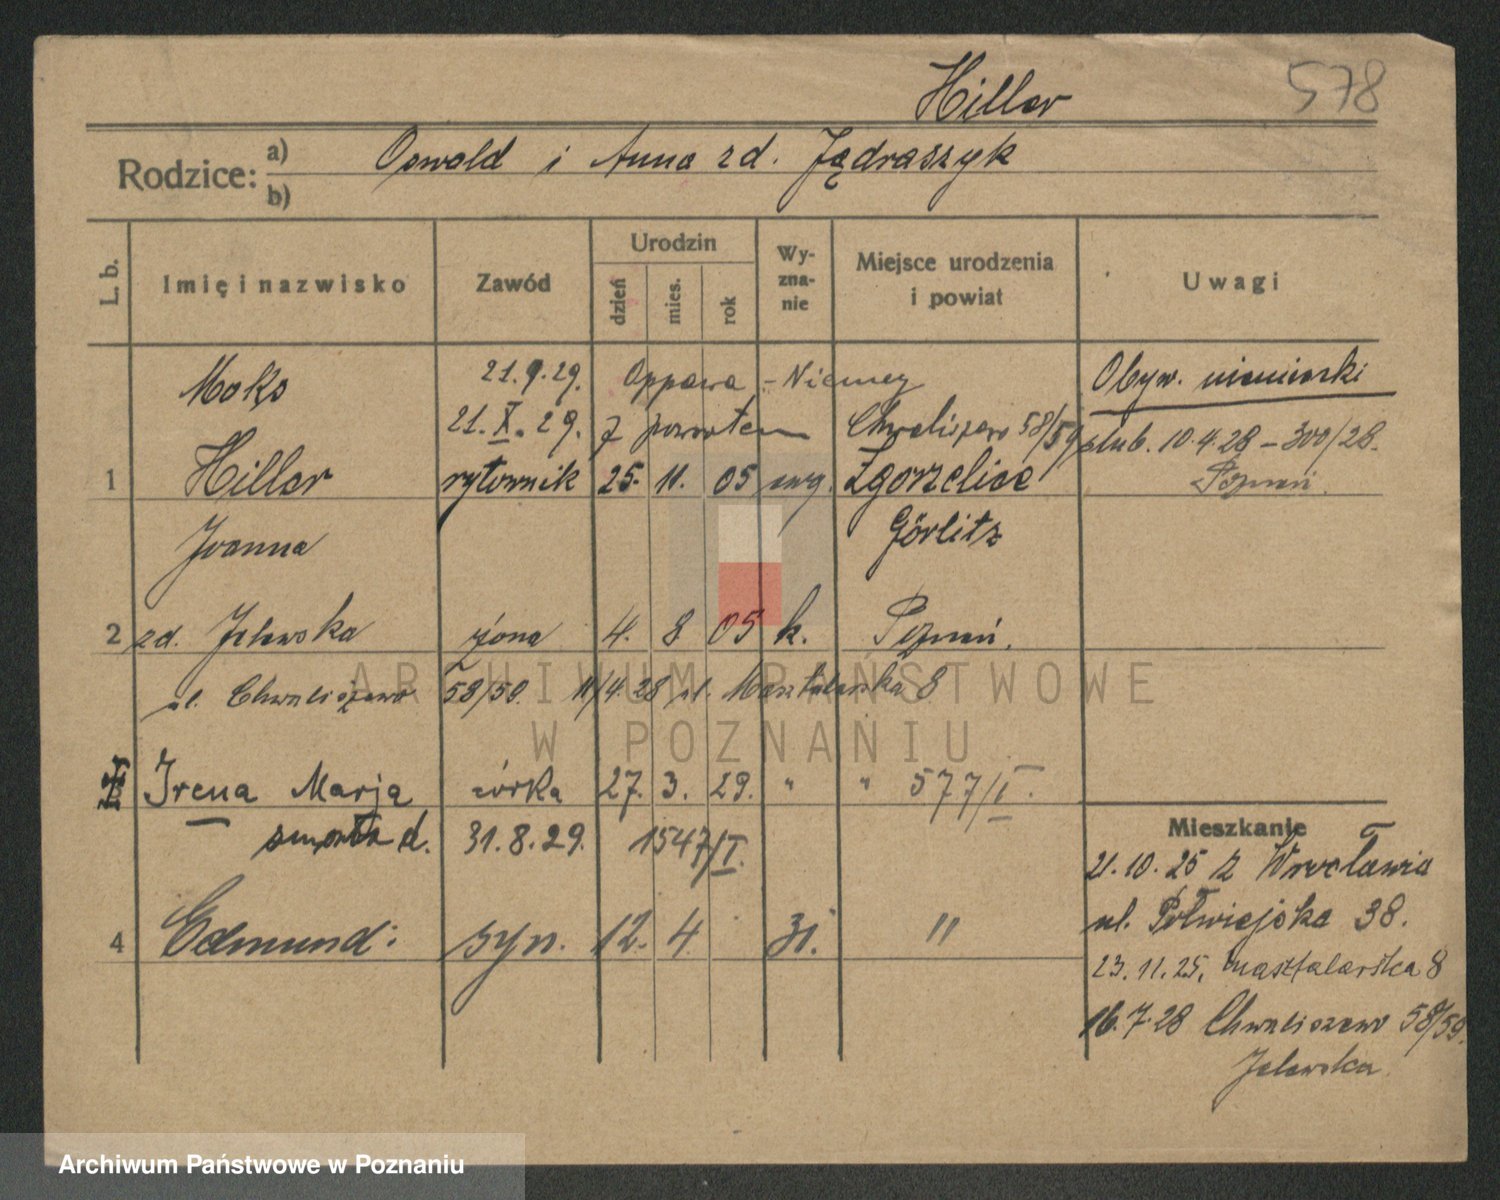 Hiller
578
Rodzice: a) Oswald i Anna zd. Jędraszyk
b)
L. b. Imię i nazwisko Zawód Urodzin dzień mies. rok Wyznanie Miejsce urodzenia i powiat Uwagi
Maks 21.9.29. Oppawa - Niemcy Obyw. niemiecki
21.X.29. z powrotem Chwaliszewo 58/59 slub. 10.4.28 - 300/28.
1 Hiller rytownik 25. 11. 05 ewg. Zgorzelice Poznań.
Joanna Görlitz
2 zd. Jelewska żona 4. 8 05 k. Poznań.
ul. Chwaliszewo 58/59. 11/4.28 ul. Masztalarska 8
Irena Marja córka 27. 3. 29. " " 577/I.
zmarła d. 31.8.29. 1547/I.
4 Edmund: syn. 12. 4. 31. "
Mieszkanie
21.10.25 z Wrocławia
ul. Półwiejska 38.
23.11.25, Masztalarska 8
16.7.28 Chwaliszewo 58/59.
Jelewska
ARCHIWUM PAŃSTWOWE
W POZNANIU
Archiwum Państwowe w Poznaniu